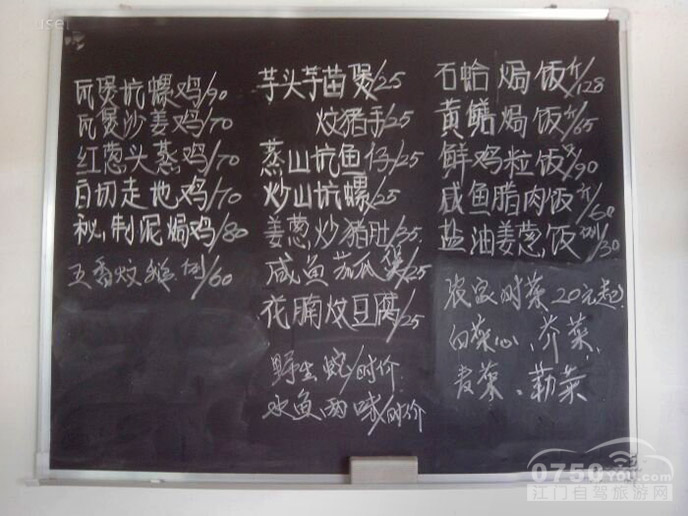 瓦煲坑螺鸡/90
瓦煲沙姜鸡/70
红葱头蒸鸡/70
白切走地鸡/70
秘制泥焗鸡/80
五香炆鹅 例/60
芋头芋苗煲/25
炆猪手/25
蒸山坑鱼仔/25
炒山坑螺/25
姜葱炒猪肚/35
咸鱼茄瓜煲/25
花腩炆豆腐/25
野生蛇/时价
水鱼两味/时价
石蛤焗饭/128
黄鳝焗饭/65
鲜鸡粒饭/90
咸鱼腊肉饭/60
盐油姜葱饭 例/30
农家时菜20元起
白菜心、芥菜、
麦菜、勒菜
0750YOU.com
江门自驾旅游网